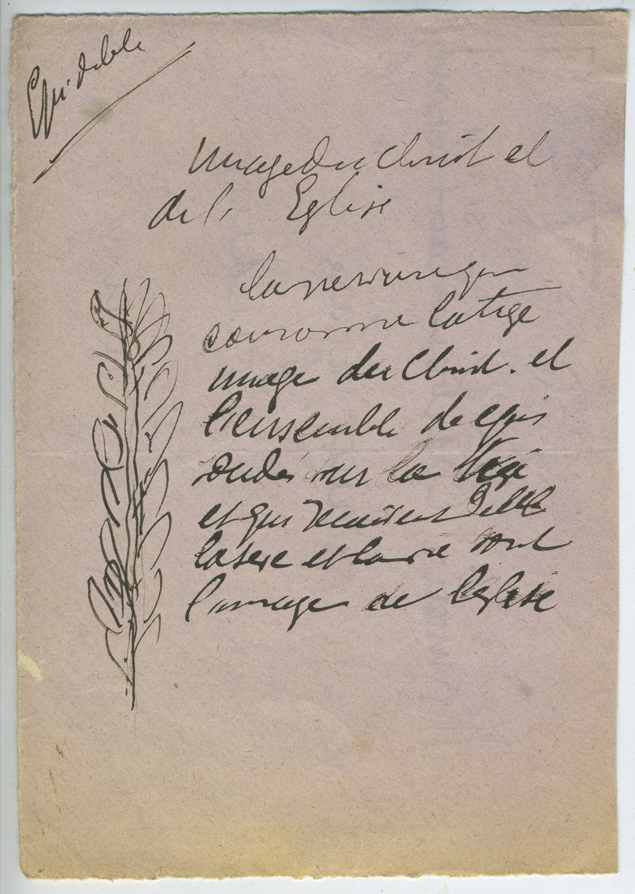 Epi de blé
Image du Christ et
de l' Eglise
la
couronne la tige
image du Christ. et
l'ensemble de epis
sur la tige
et qui reçoivent d'elle
la seve et la vie sont
l'image de l'eglise